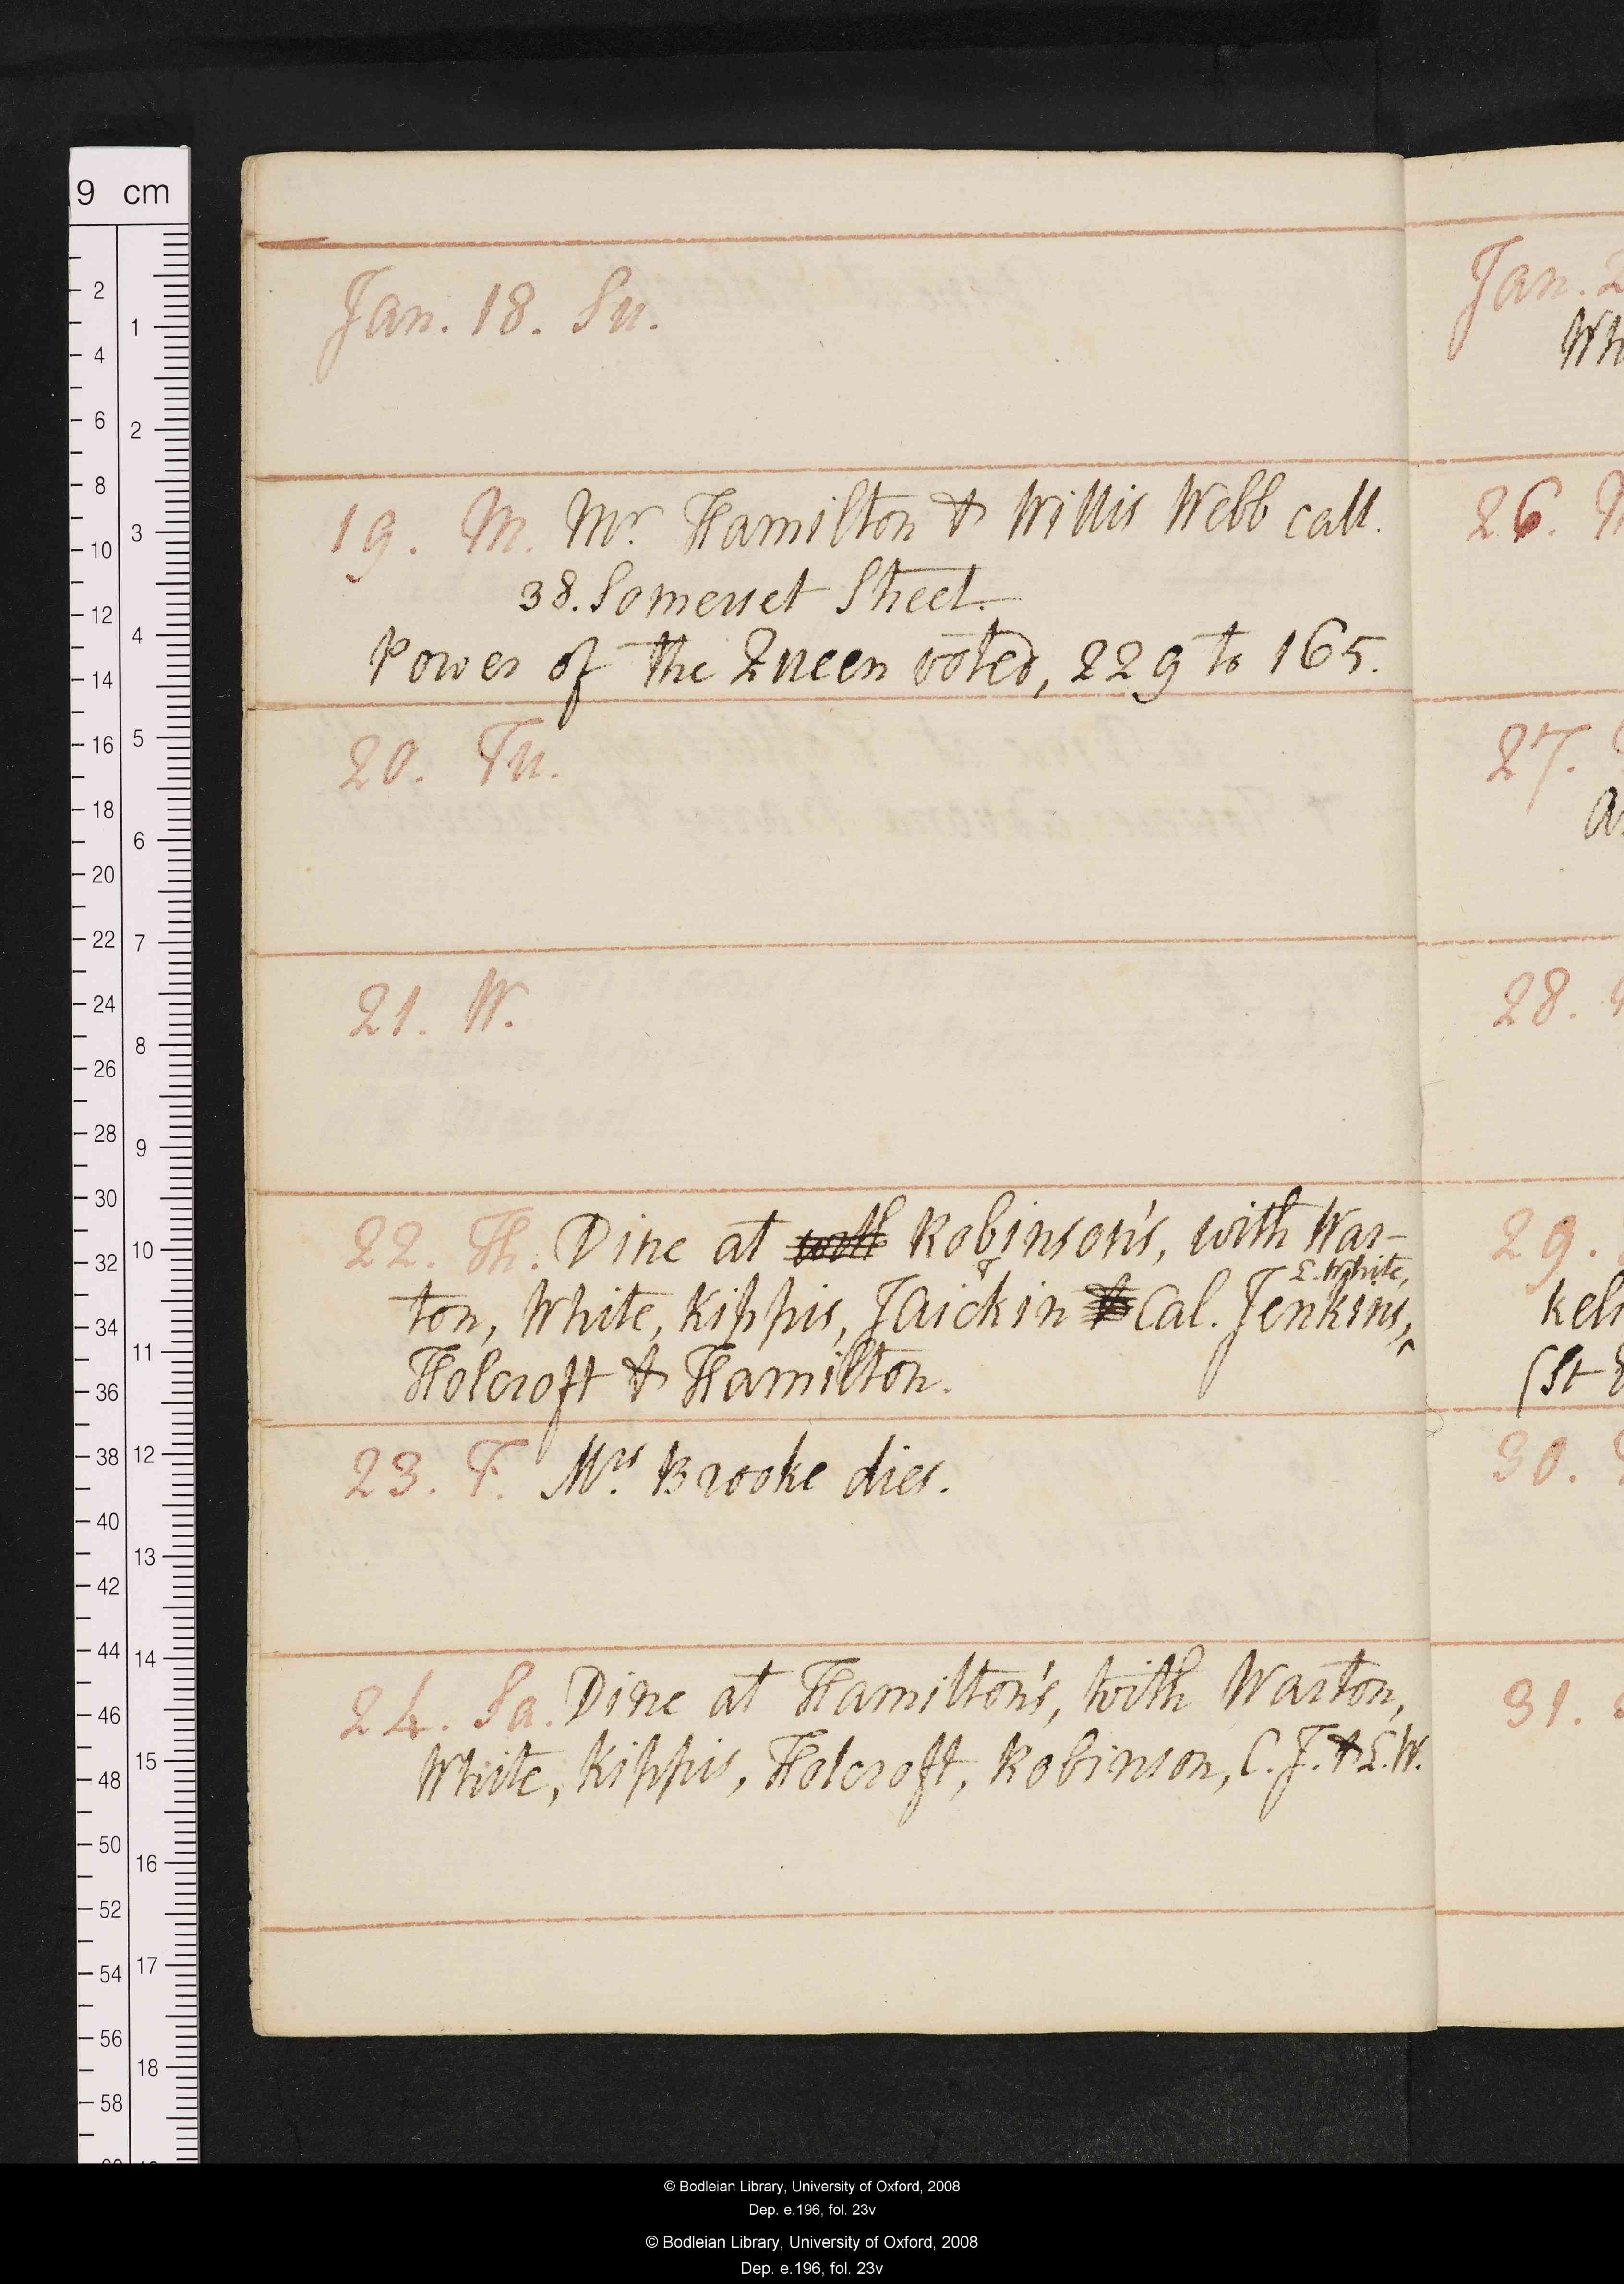 Jan. 18. Su.
19. M. Mr. Hamilton & Willis Webb call.
38. Somerset Street.
Power of the Queen voted, 229 to 165.
20. Tu.
21. W.
22. Th. Dine at with Robinson's, with War-
ton, White, Kippis, Jaickin & Cal. Jenkins,
E. White,
Holcroft & Hamilton.
23. F. Mrs. Brooke dies.
24. Sa. Dine at Hamilton's, with Warton,
White, Kippis, Holcroft, Robinson, C. J. & E. W.
Jan. 2
Wh
26. M
27.
28.
29.
Kel
(St
30.
31.
9 cm
2
4
6
8
10
12
14
16
18
20
22
24
26
28
30
32
34
36
38
40
42
44
46
48
50
52
54
56
58
1
2
3
4
5
6
7
8
9
10
11
12
13
14
15
16
17
18
© Bodleian Library, University of Oxford, 2008
Dep. e.196, fol. 23v
© Bodleian Library, University of Oxford, 2008
Dep. e.196, fol. 23v